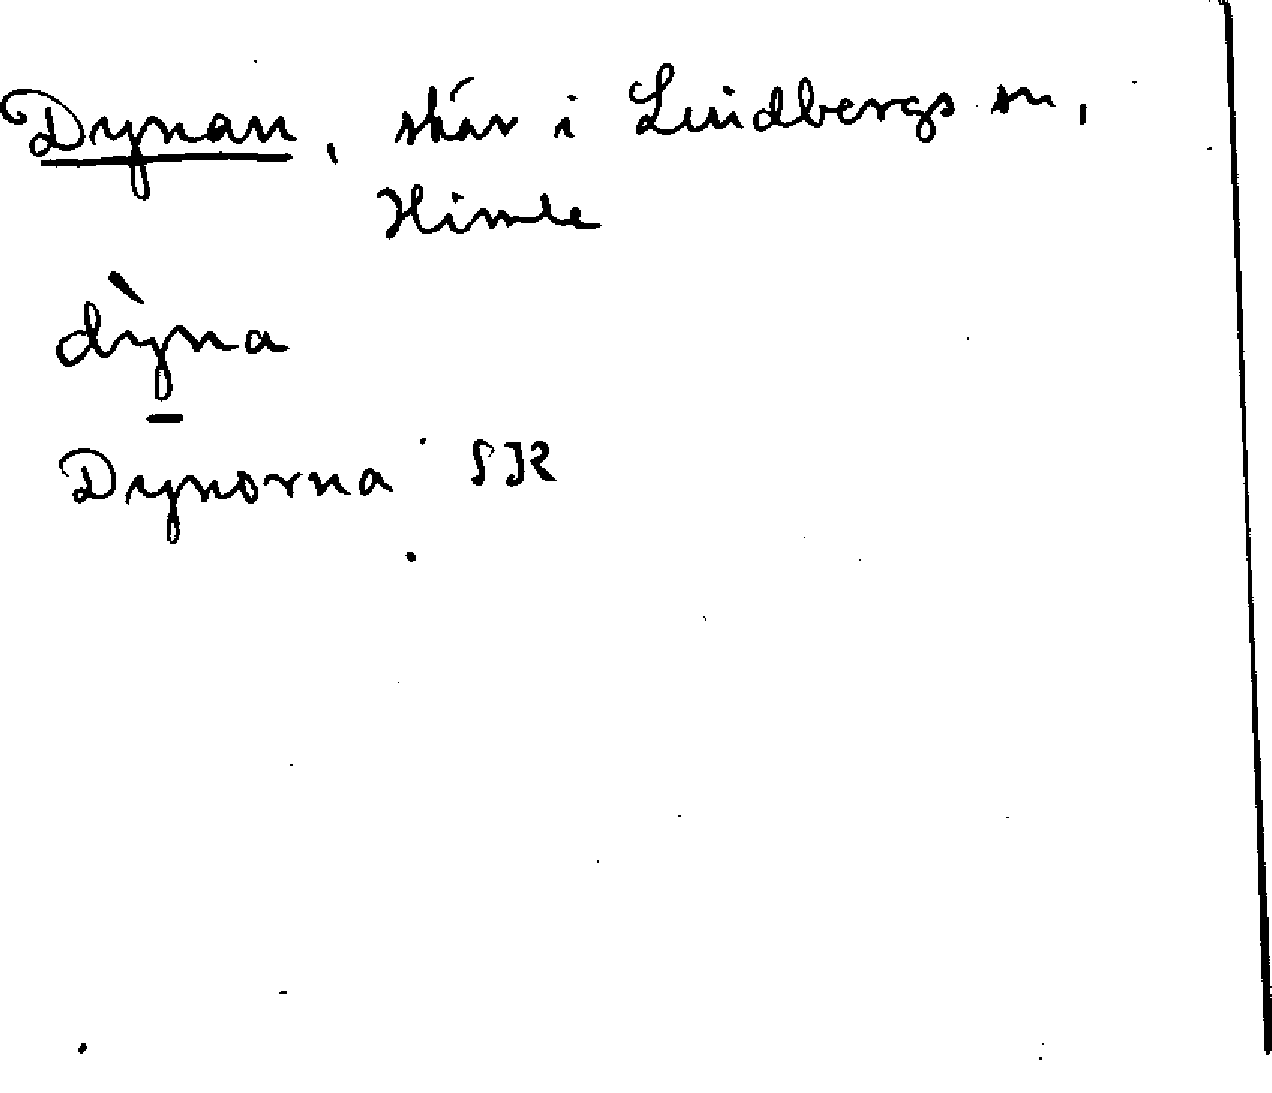 Dynan, skär i Lindbergs sn,
Himle
dỳna
Dynorna SJR